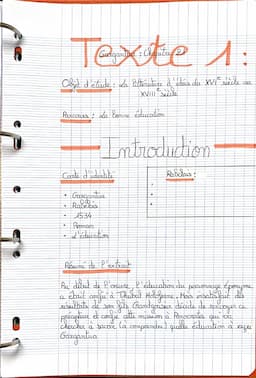 Texte 1 :
Gargantua : Chapitre
Objet d'étude : La littérature d'idées du XVIe siècle au
XVIIIe siècle
Parcours : La bonne éducation
Introduction
Carte d'identité
Rabelais :
• Gargantua
• Rabelais
• 1534
• Roman
• L'éducation
Résumé de l'extrait
Au début de l'œuvre, l'éducation du personnage éponyme
a était confié à Thubal Holoferne. Mais insatisfait des
résultats de son fils Grandgousier décide de
précepteur et confie cette mission à Ponocrates qui va
cherche à savoir (a comprendre) quelle éducation a reçu
Gargantua